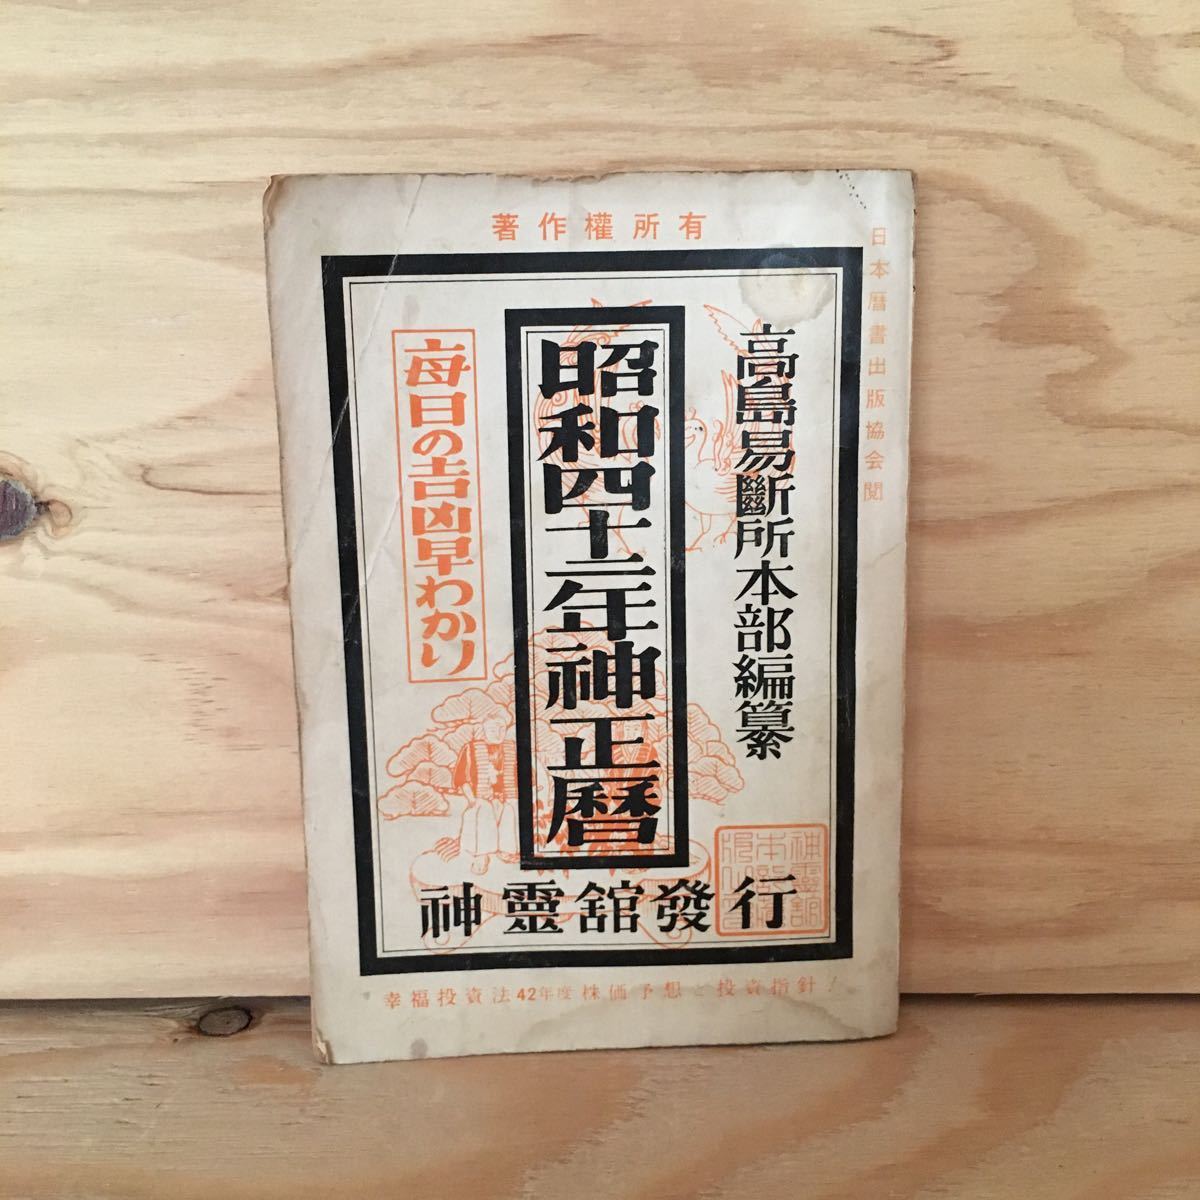 著作權所有
日本暦書出版協会閲
高島易斷所本部編纂
昭和四十二年神正暦
毎日の吉凶早わかり
神靈舘發行
幸福投資法42年度株価予想と投資指針！